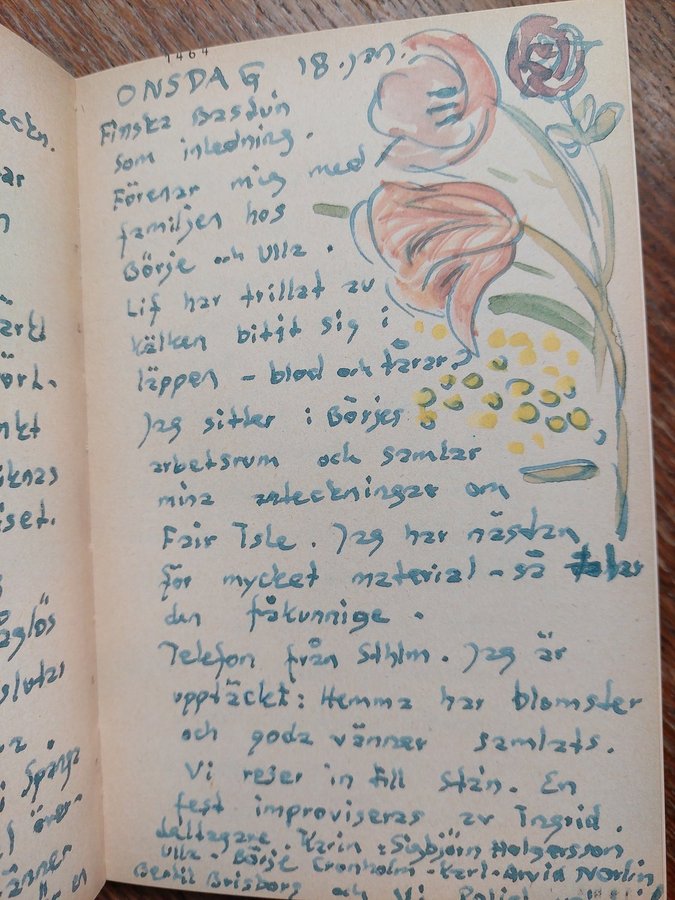 eckn.
ar
n
ärkt
ört.
nkt
knas
iset.
aglös
slutar
a.
i Spanga
över-
änner
en
1464
ONSDAG 18. jan.
Finska Bastun
som inledning.
Förenar mig med
familjen hos
Börje och Ulla.
Lif har trillat av
kälken bitit sig i
läppen - blod och tårar.
Jag sitter i Börjes
arbetsrum och samlar
mina anteckningar om
Fair Isle. Jag har nästan
för mycket material - så talar
den fåkunnige.
Telefon från Sthlm. Jag är
upptäckt: Hemma har blomster
och goda vänner samlats.
Vi reser in till stan. En
fest improviseras av Ingrid.
deltagare. Karin & Sigbjörn Holgersson
Ulla - Börje Cronholm - Karl-Arvid Norlin
Bertil Brisborg och Vi